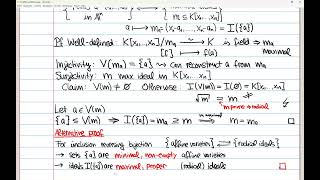 in A^n m ⊆ K[x₁,...,xₙ]
a ⟼ m_a = (x₁-a₁, ..., xₙ-aₙ) = I({a})
Pf Well-defined: K[x₁,...,xₙ]/m_a → K is field ⇒ m_a maximal
[f] ⟼ f(a)
Injectivity: V(m_a) = {a} ⇝ can reconstruct a from m_a
Surjectivity: m max ideal in K[x₁,...,xₙ]
Claim: V(m) ≠ ∅ Otherwise: I(V(m)) = I(∅) = K[x₁,...,xₙ]
√m = m
m prime ⇒ radical
Let a ∈ V(m)
{a} ⊆ V(m) ⇒ I({a}) = m_a ⊇ m ⇒ m_a = m
Alternative proof
For inclusion reversing bijection {affine varieties} ⇄ {radical ideals}
→ sets {a} are minimal, non-empty affine varieties
→ ideals I({a}) are maximal, proper (radical) ideals